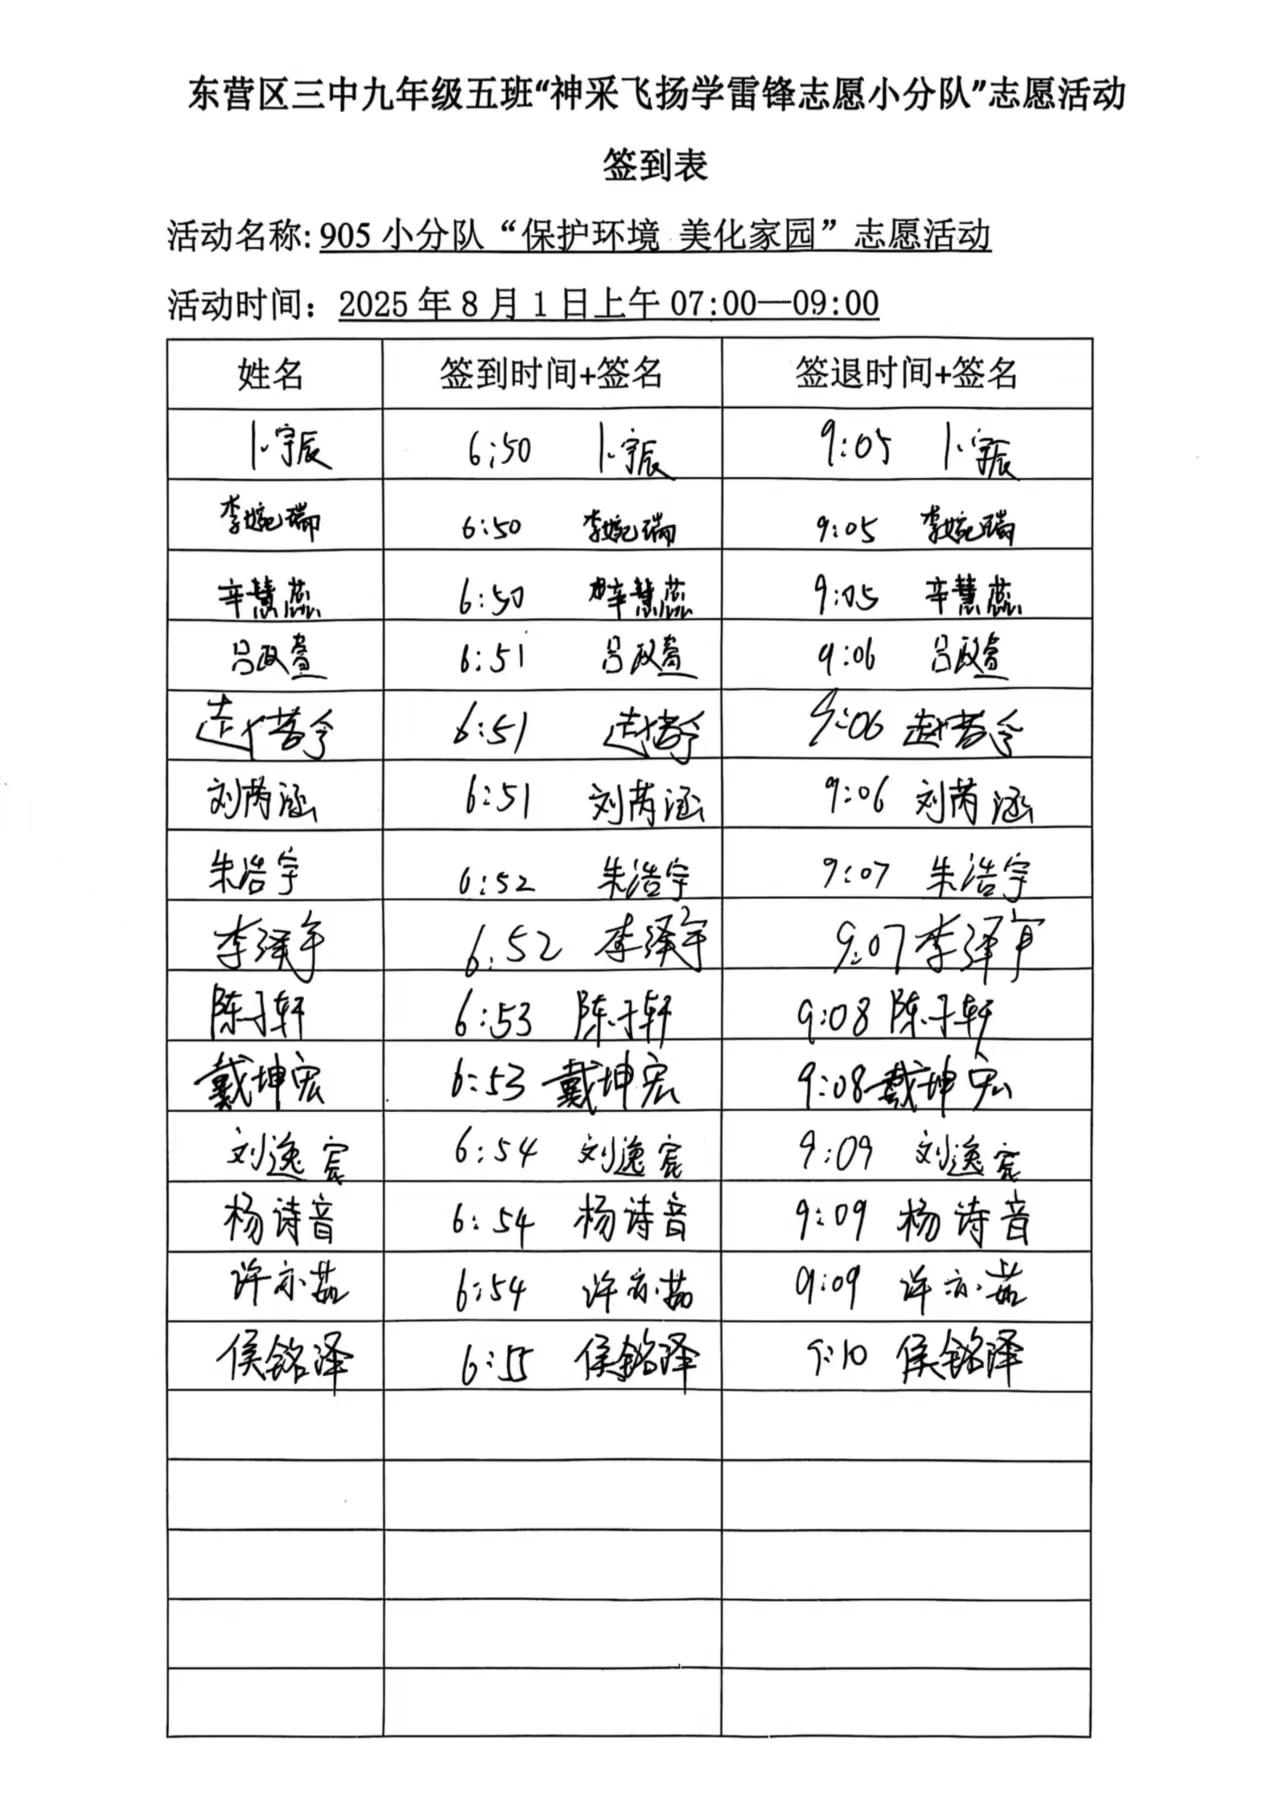 东营区三中九年级五班“神采飞扬学雷锋志愿小分队”志愿活动
签到表
活动名称: 905 小分队“保护环境 美化家园”志愿活动
活动时间: 2025 年 8 月 1 日上午 07:00—09:00
姓名 签到时间+签名 签退时间+签名
卜宇辰 6:50 卜宇辰 9:05 卜宇辰
李婉瑞 6:50 李婉瑞 9:05 李婉瑞
辛慧蕊 6:50 辛慧蕊 9:05 辛慧蕊
吕政萱 6:51 吕政萱 9:06 吕政萱
6:51 9:06
刘芮涵 6:51 刘芮涵 9:06 刘芮涵
朱浩宇 6:52 朱浩宇 9:07 朱浩宇
李泽宇 6:52 李泽宇 9:07 李泽宇
陈子轩 6:53 陈子轩 9:08 陈子轩
戴坤宏 6:53 戴坤宏 9:08 戴坤宏
刘逸宸 6:54 刘逸宸 9:09 刘逸宸
杨诗音 6:54 杨诗音 9:09 杨诗音
许亦茹 6:54 许亦茹 9:09 许亦茹
侯铭泽 6:55 侯铭泽 9:10 侯铭泽